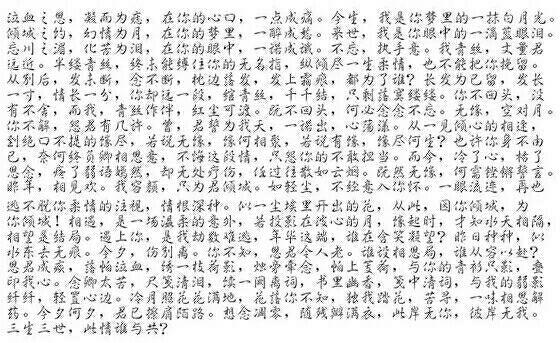 泣血之恩，凝而为痣，在你的心口，一点成痛。今生，我是你梦里的一抹白月光。
倾城之约，幻情为月，在你的梦里，一醉成愁。来世，我是你眼中的一滴蓝眼泪。
忘川之湄，化苦为泪，在你的眼中，一诺成谶。不忘，执手意。我青丝，丈量君
远近。半缕青丝，终未能缚住你的无名指，纵倾尽一生柔情，也不能把你挽留。
从别后，发未断，念不断，枕边落发，发上霜痕，都为了谁？长发为已留，发长
一寸，情长一分，你却远一段，绾青丝，千千结，只剩落寞缕缕。你不回头，没
有不舍，而我，青丝作伴，红尘可渡。既不回头，何必念念不忘。无缘，空对月。
你不解，怨君有几许。曾，君誓为我天，一诺出，心荡漾。从一见倾心的相逢，
到绝口不提的缘尽，若说无缘，缘何相聚，若说有缘，缘尽何生？也许你身不由
已，奈何终负卿相思意，不悔这段情，只怨你的不敢担当。而今，冷了心，格了
思念，疼了弱语嫣然，却无处疗伤，任过往散如云烟。既然无缘，何需铿锵誓言。
昨年，相见欢。我容颜，只为君倾城。如轻尘，不经意入你怀。一眼流连，再也
逃不脱你柔情的注视，情根深种。似一尘埃里开出的花，从此，因你倾城，为
你倾城！相遇，是一场温柔的意外，若投影在波心的月，缘起时，才知水天相隔，
相望是结局。遇上你，是我劫数难逃，年华这端，谁在含笑凝望？昨日种种，似
水东去无痕。今夕，伤别离。你不知，思君令人老。谁设相思局，谁从容以赴？
思君成疾，落帕泣血，绣一枝荷影，烛旁牵念，帕上芰荷，与你的青衫只影，叠
印我心。念卿太苦，尺笺清泪，续一阕离词，书里幽香，笺中清词，与我的弱影
纤纤，轻置心边。冷月照花花满地，花落你不知，独我踏花，苦寻，一味相思解
药。今夕何夕，君已擦肩陌路。想念凋零，随残瓣满衣，此岸无你，彼岸无我。
三生三世，此情谁与共？